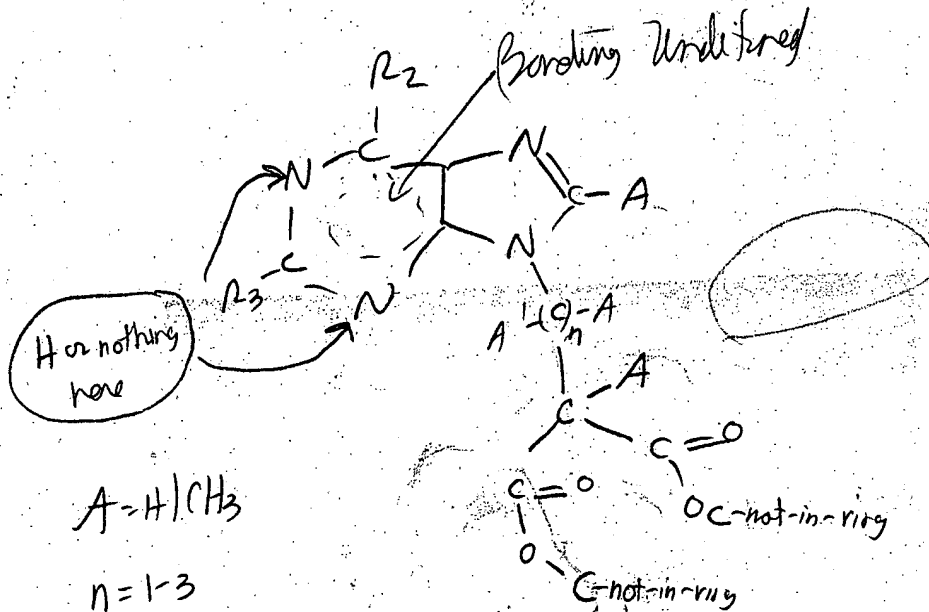 Bonding Undefined
R2
N C N
C-A
N
R3 C N
A-(C)n-A
H or nothing
here
C A
C=O
C=O
OC-not-in-ring
O
C-not-in-ring
A=H|CH3
n=1-3